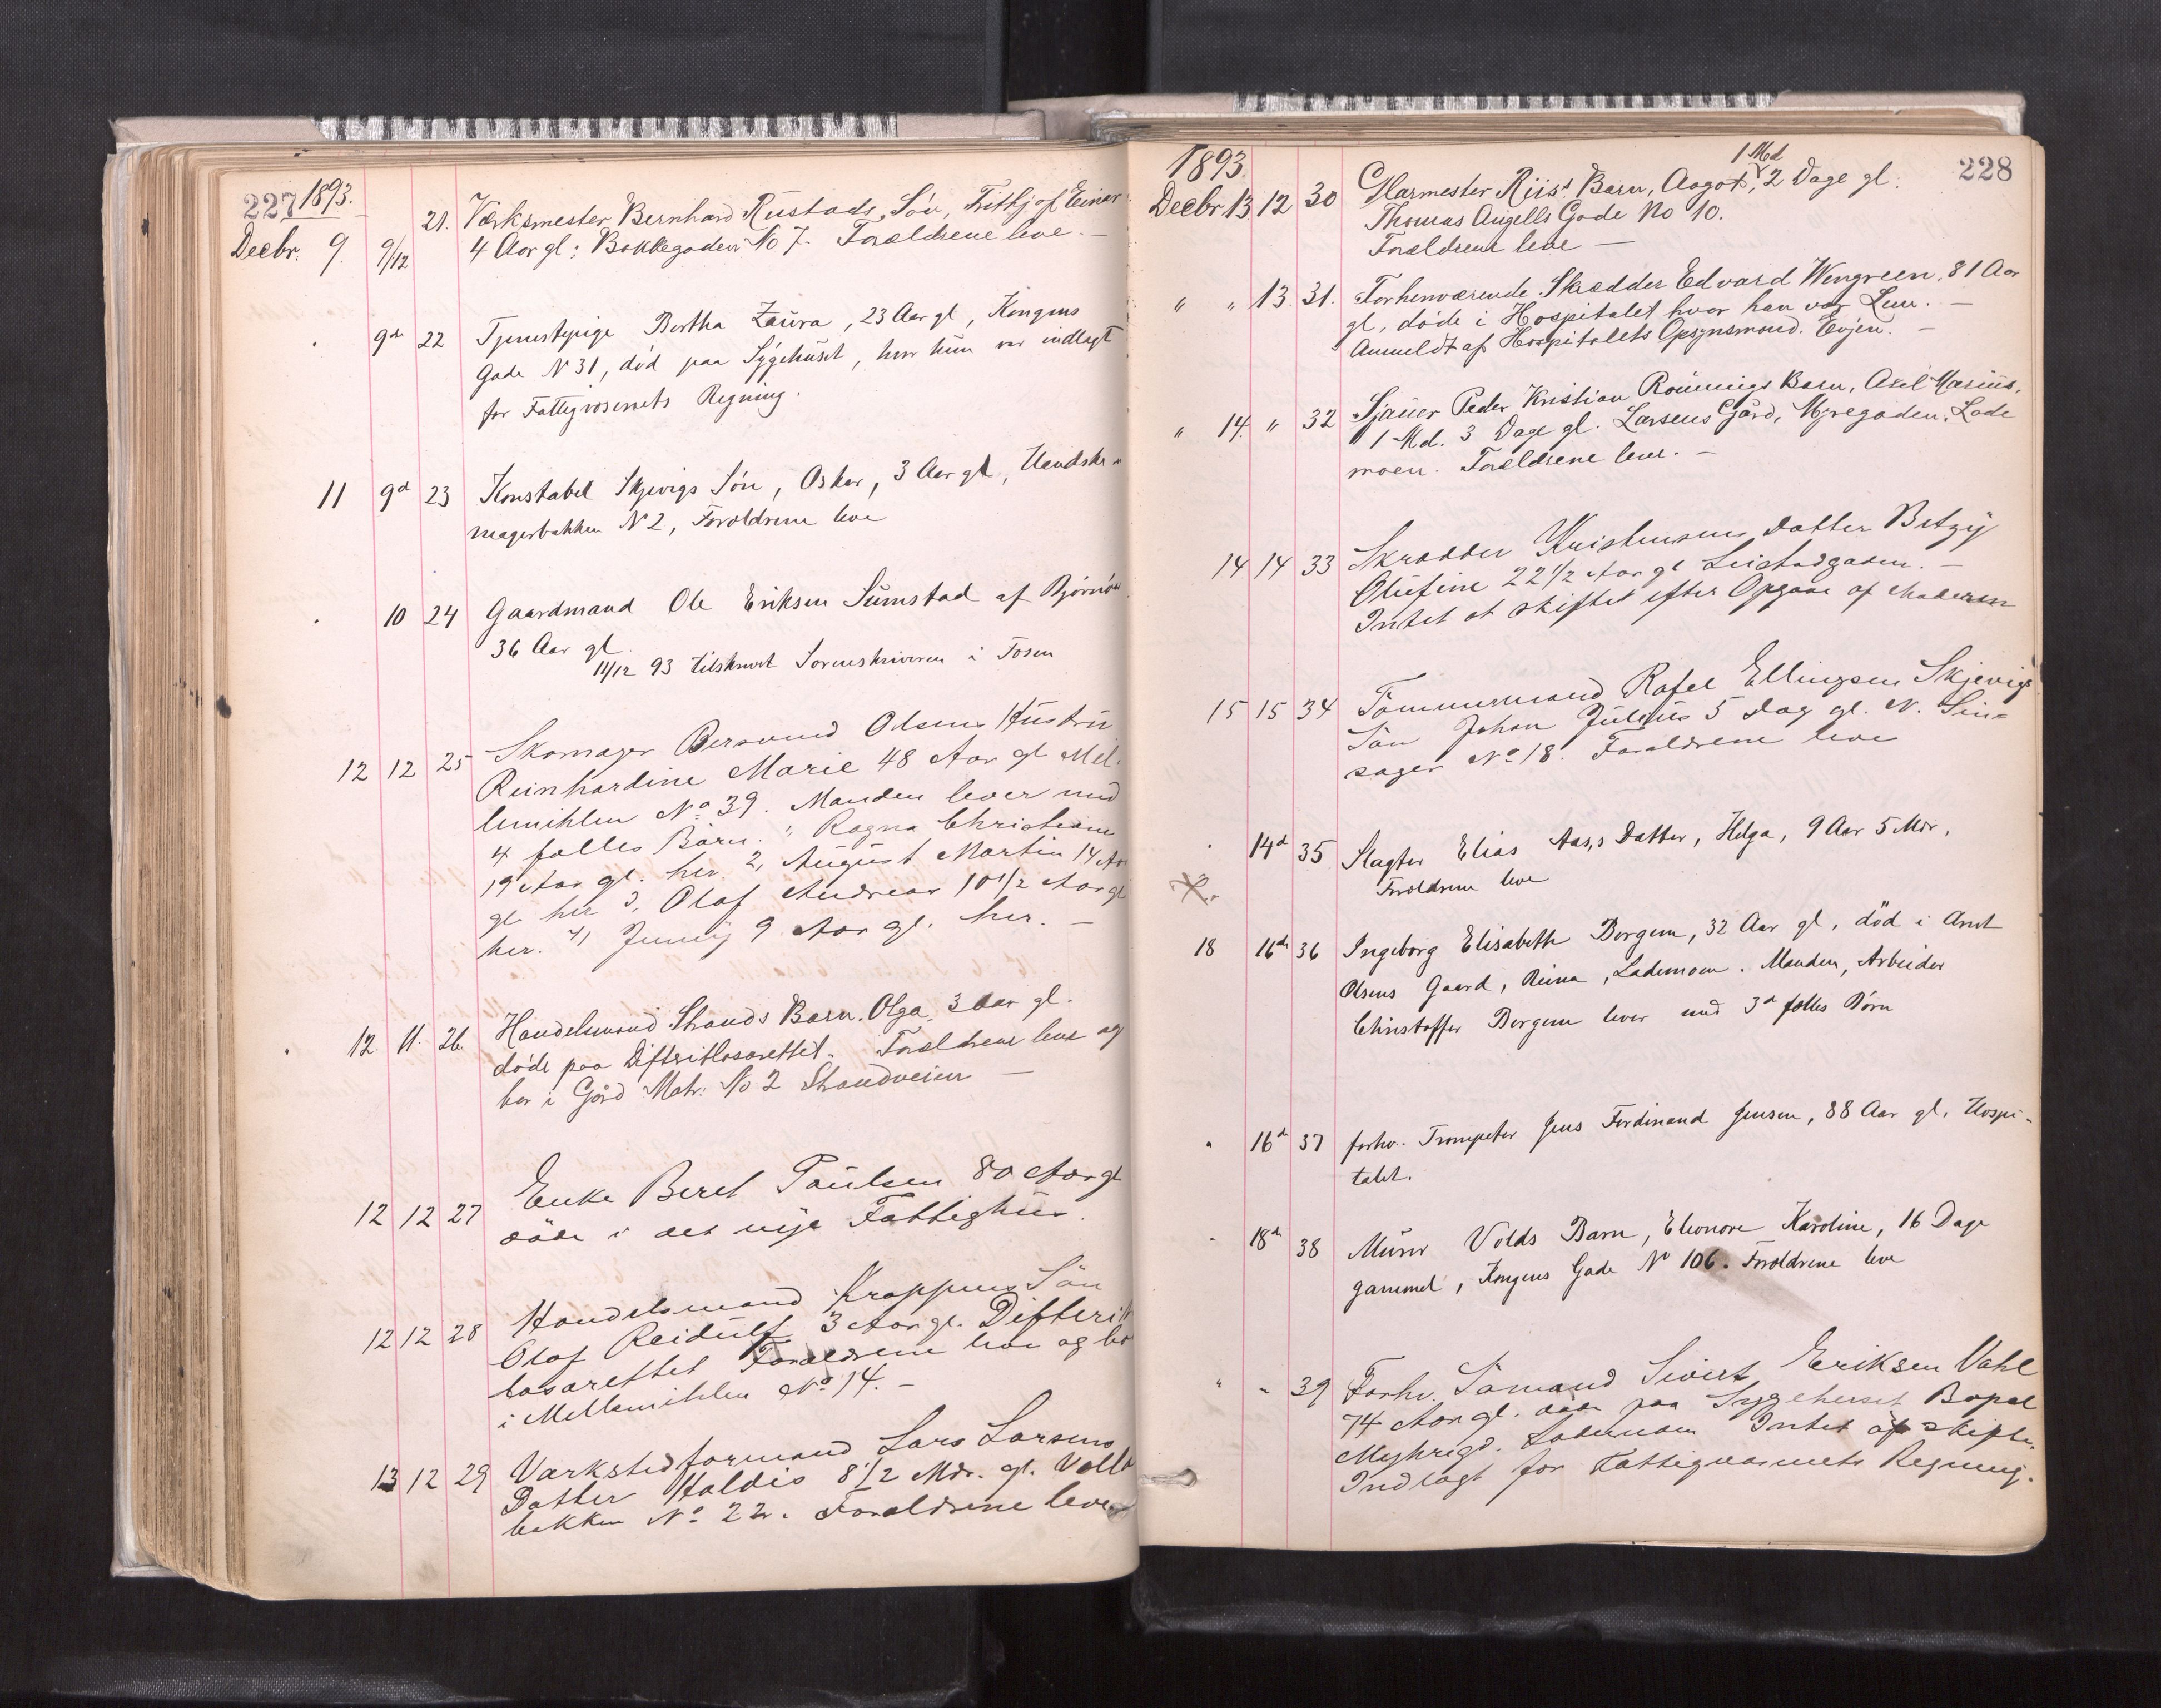 227 1893.
Decbr. 9. 9/12 21. Værksmester Bernhard Rustads Søn, Fritjof Einar
4 Aar gl: Bakkegaden No 7. Forældrene leve. —
" 9de 22 Tjenestepige Bertha Laura, 23 Aar gl, Kongens
Gade N 31, död paa Sygehuset, hvor hun var indlagt
for Fattigvæsenets Regning.
11 9d 23 Konstabel Skjevigs Sön, Oskar, 3 Aar gl, Handske
magerbakken N 2, Forældrene leve
" 10 24 Gaardmand Ole Eriksen Sumstad af Björnör
36 Aar gl.
14/12 93 tilskrevet Sorenskriveren i Fosen
12 12 25 Skomager Bersvend Olsens Hustru
Reinhardine Marie 48 Aar gl Mel-
lemihlen No 39. Manden lever med
4 fælles Börn. 1, Ragna Christiane
19 Aar gl. her 2, August Martin 14 Aar
gl her 3, Olaf Andreas 10 1/2 Aar gl
her. 4, Jenny 9 Aar gl. her. —
" 12. 11. 26. Handelsmand Strands Barn, Olga, 3 Aar gl.
døde paa Difteritlasarettet. Forældrene leve og
bor i Gård Matr: No 2 Strandveien —
12 12 27 Enke Beret Paulsen 80 Aar gl
döde i det nye Fattighus.
12 12 28 Handelsmand Kroppens Sön
Olaf Reidulf 3 Aar gl. Difterit
lasarettet Forældrene leve og bor
i Mellemihlen No 14. —
13 12 29 Værkstedformand Lars Larsens
Datter Haldis 8 1/2 Mdr. gl. Vollo
bakken No 22. Forældrene leve
1893. 228
1 Md
Decbr 13 12 30 Glarmester Riis's Barn, Aagot, 2 Dage gl:
Thomas Angells Gade No 10.
Forældrene leve —
" " 13. 31. Forhenværende Skrædder Edvard Wengreen, 81 Aar
gl, døde i Hospitalet hvor han var Lem. —
Anmeldt af Hospitalets Opsynsmand. Evjen. —
" 14. " 32 Sjauer Peder Kristian Rønnings Barn, Axel Marius,
1 Md. 3 Dage gl. Larsens Gård, Myregaden, Lade
moen. Forældrene leve. —
14 14 33 Skrædder Kristensens Datter Betzy
Olufine 22 1/2 Aar gl Leistadgaden. —
Intet at skifte efter Opgave af Moderen
15 15 34 Tömmermand Rafel Ellingsen Skjevigs
Sön Johan Julius 5 Dag gl. N. Sin-
sager No 18. Forældrene leve
" 14d 35 Slagter Elias Aas,s Datter, Helga, 9 Aar 5 Mdr,
Forældrene leve
18 16de 36 Ingeborg Elisabeth Borgen, 32 Aar gl, död i Arnt
Olsens Gaard, Reina, Lademoen. Manden, Arbeider
Christoffer Borgen lever med 3d fælles Börn
" 16de 37 forhv. Trompeter Jens Ferdinand Jensen, 88 Aar gl, Hospi-
talet.
" 18de 38 Murer Volds Barn, Eleonore Karoline, 16 Dage
gammel, Kongens Gade No 106. Forældrene leve
" " 39 Forhv. Sömand Sivert Eriksen Vahl
74 Aar gl. döde paa Sygehuset Bopæl
Lademoen Intet at skifte.
Indlagt for Fattigvæsenets Regning.